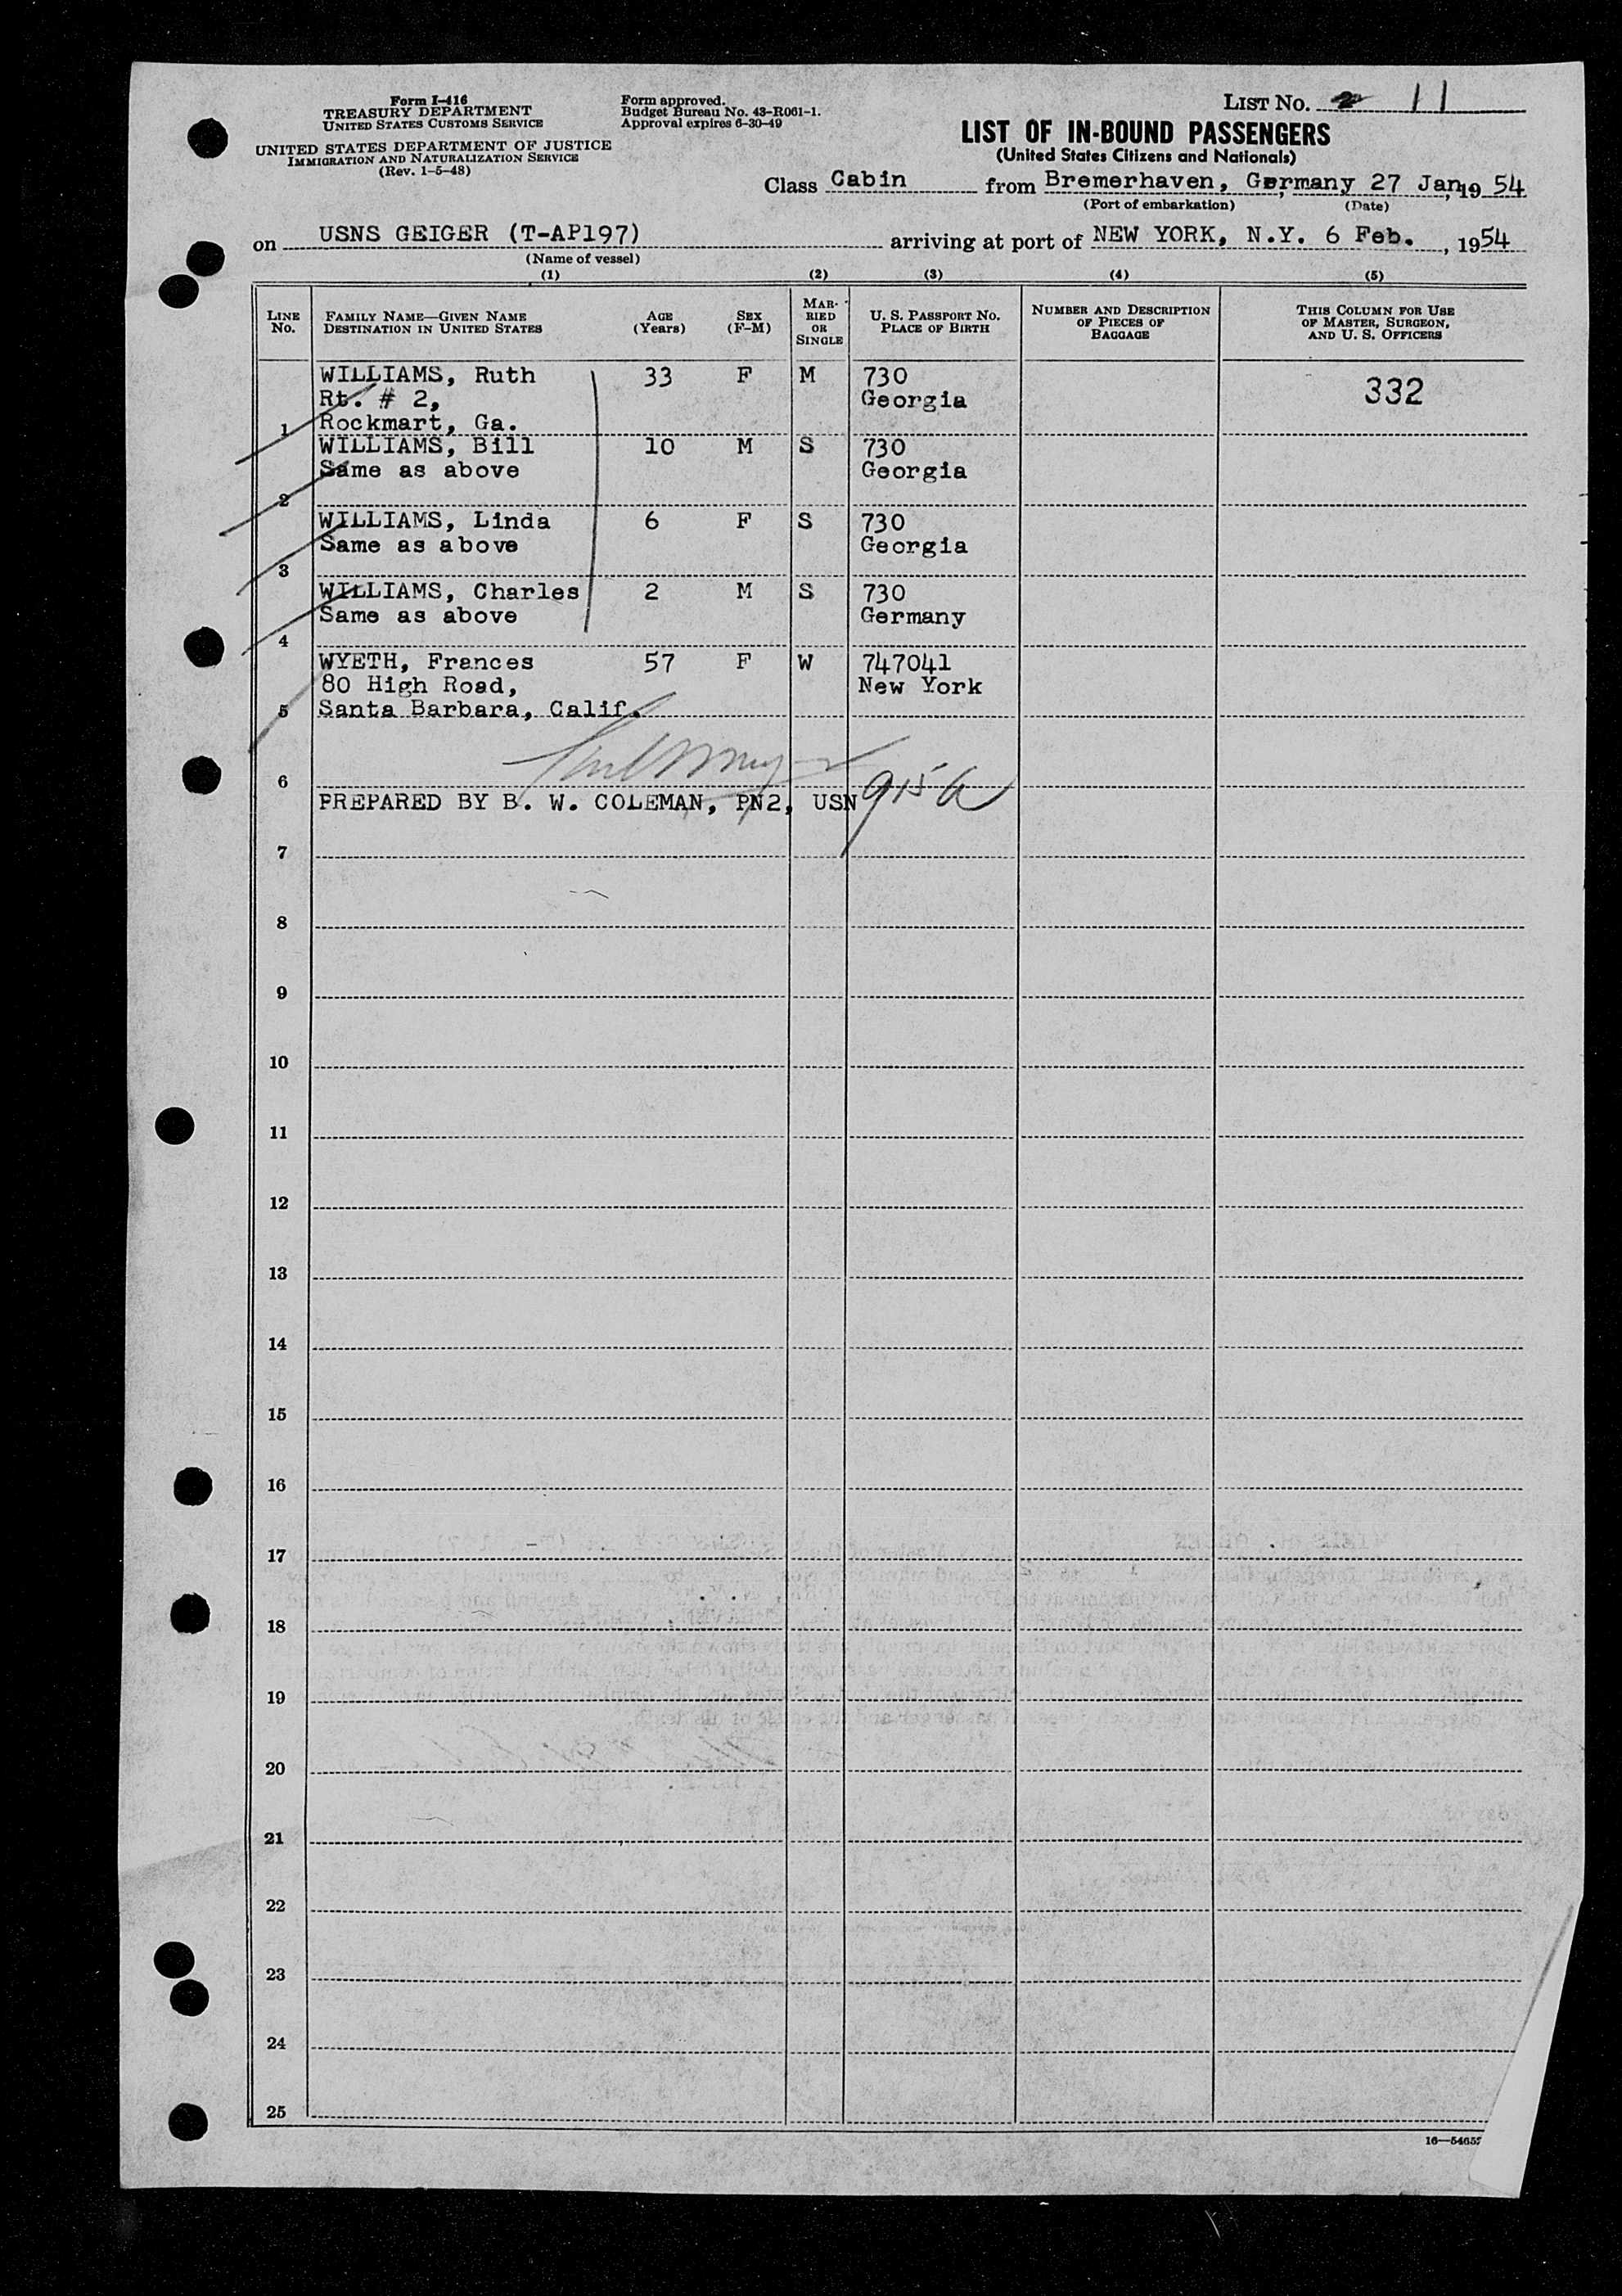 Form I-416
TREASURY DEPARTMENT
UNITED STATES CUSTOMS SERVICE
UNITED STATES DEPARTMENT OF JUSTICE
IMMIGRATION AND NATURALIZATION SERVICE
(Rev. 1-5-48)
Form approved.
Budget Bureau No. 43-R061-1.
Approval expires 6-30-49
LIST NO. 2 11
LIST OF IN-BOUND PASSENGERS
(United States Citizens and Nationals)
Class Cabin from Bremerhaven, Germany 27 Jan, 19 54
(Port of embarkation) (Date)
on USNS GEIGER (T-AP197) arriving at port of NEW YORK, N.Y. 6 Feb. , 1954
(Name of vessel)
(1) (2) (3) (4) (5)
LINE No. FAMILY NAME—GIVEN NAME DESTINATION IN UNITED STATES AGE (Years) SEX (F-M) MARRIED OR SINGLE U. S. PASSPORT NO. PLACE OF BIRTH NUMBER AND DESCRIPTION OF PIECES OF BAGGAGE THIS COLUMN FOR USE OF MASTER, SURGEON, AND U. S. OFFICERS
WILLIAMS, Ruth 33 F M 730 332
Rt. # 2, Georgia
1 Rockmart, Ga.
WILLIAMS, Bill 10 M S 730
Same as above Georgia
2
WILLIAMS, Linda 6 F S 730
Same as above Georgia
3
WILLIAMS, Charles 2 M S 730
Same as above Germany
4
WYETH, Frances 57 F W 747041
80 High Road, New York
5 Santa Barbara, Calif.
6
PREPARED BY B. W. COLEMAN, PN2, USN
7
8
9
10
11
12
13
14
15
16
17
18
19
20
21
22
23
24
25